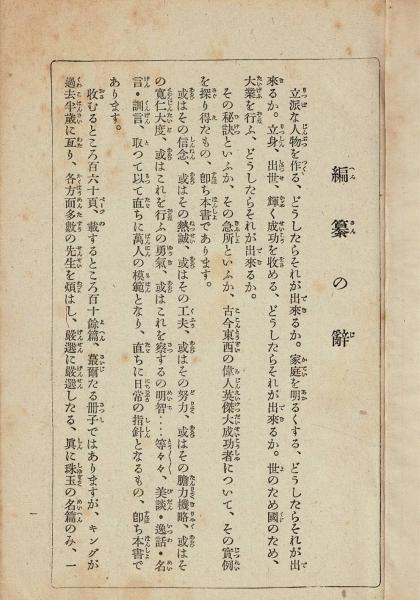 編纂の辭
立派な人物を作る、どうしたらそれが出來るか。家庭を明るくする、どうしたらそれが出
來るか。立身、出世、輝く成功を收める、どうしたらそれが出來るか。世のため國のため、
大業を行ふ、どうしたらそれが出來るか。
その秘訣といふか、その急所といふか、古今東西の偉人英傑大成功者について、その實例
を探り得たもの、卽ち本書であります。
或はその信念、或はその熱誠、或はその工夫、或はその努力、或はその膽力機略、或はそ
の寛仁大度、或はこれを行ふの勇氣、或はこれを察するの明智‥‥等々々、美談・逸話・名
言・訓言、取つて以て直ちに萬人の模範となり、直ちに日常の指針となるもの、卽ち本書で
あります。
收むるところ百六十頁、載するところ百十餘篇、蕞爾たる冊子ではありますが、キングが
過去半歳に亙り、各方面多數の先生を煩はし、嚴選に嚴選したる、眞に珠玉の名篇のみ、一
一